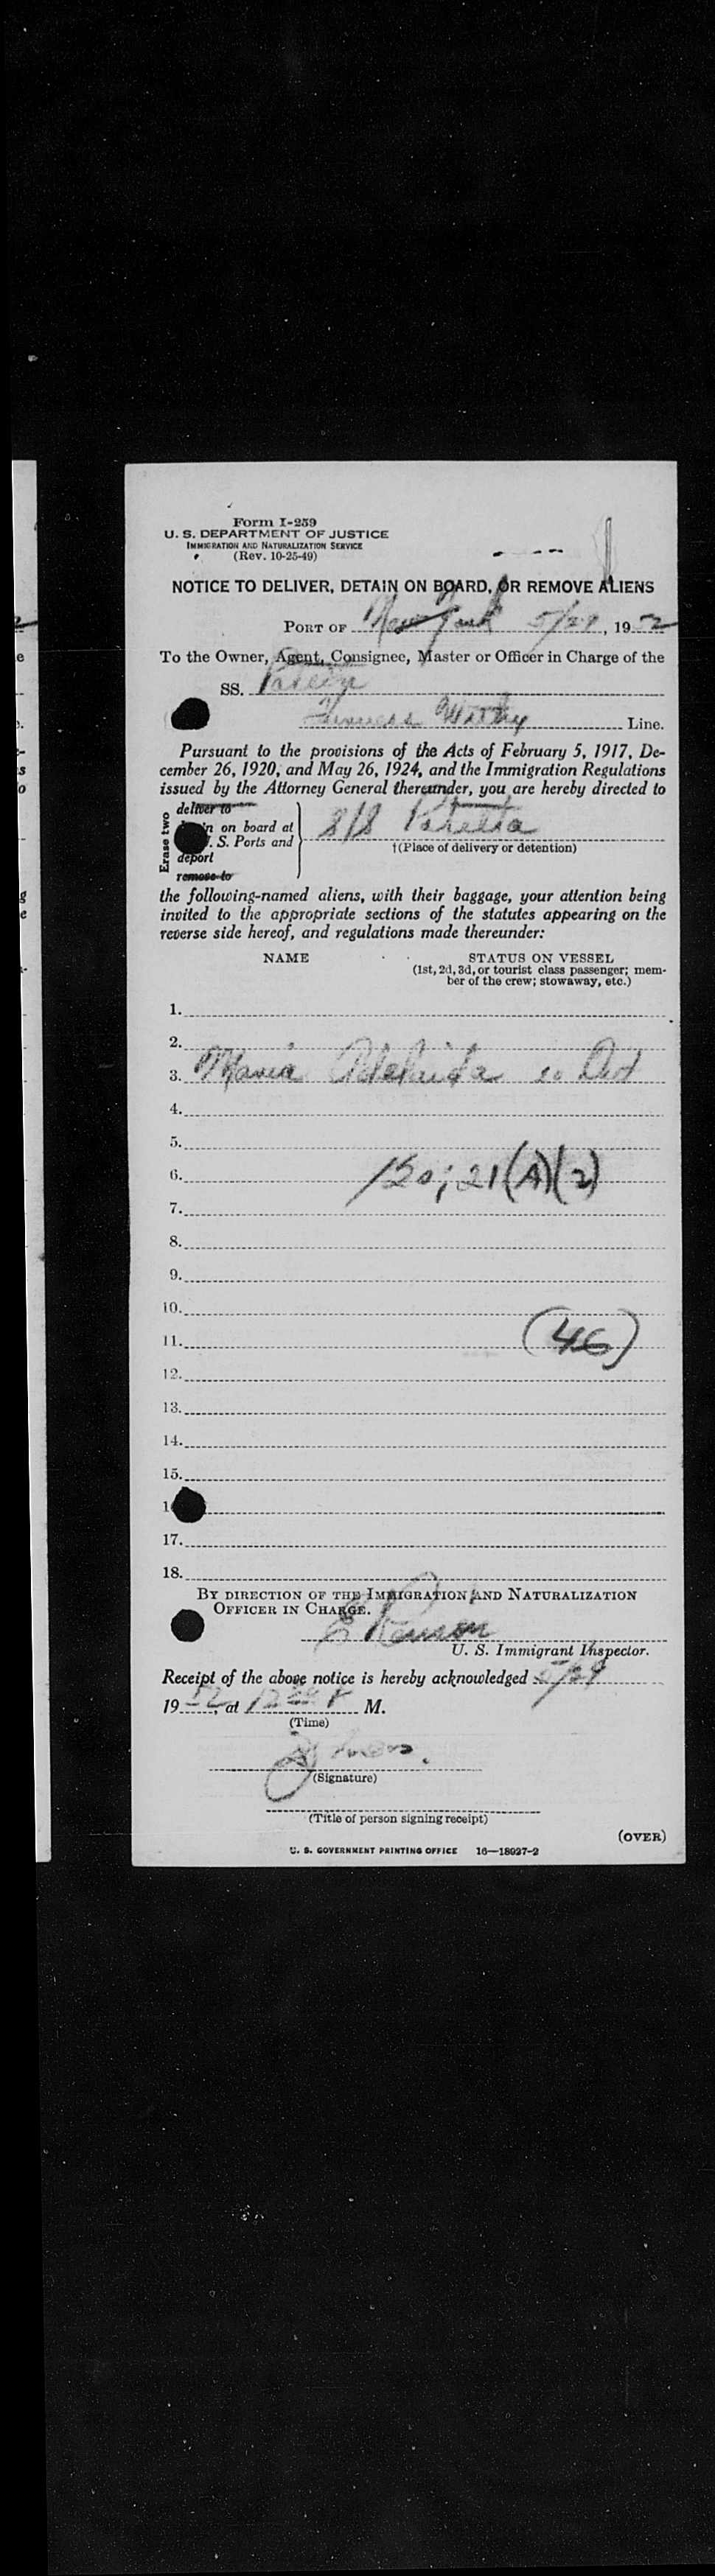 Form I-259
U. S. DEPARTMENT OF JUSTICE
IMMIGRATION AND NATURALIZATION SERVICE
(Rev. 10-25-49)
NOTICE TO DELIVER, DETAIN ON BOARD, OR REMOVE ALIENS
PORT OF New York 5/29, 1952
To the Owner, Agent, Consignee, Master or Officer in Charge of the
SS.
Furness Withy Line.
Pursuant to the provisions of the Acts of February 5, 1917, De-
cember 26, 1920, and May 26, 1924, and the Immigration Regulations
issued by the Attorney General thereunder, you are hereby directed to
Erase two
deliver to
on board at
S. Ports and
deport
remove to
S/S
†(Place of delivery or detention)
the following-named aliens, with their baggage, your attention being
invited to the appropriate sections of the statutes appearing on the
reverse side hereof, and regulations made thereunder:
NAME STATUS ON VESSEL
(1st, 2d, 3d, or tourist class passenger; mem-
ber of the crew; stowaway, etc.)
1.
2.
3. Maria Adelaida
4.
5.
6. 120; 21(A)(2)
7.
8.
9.
10.
11. (46)
12.
13.
14.
15.
1
17.
18.
BY DIRECTION OF THE IMMIGRATION AND NATURALIZATION
OFFICER IN CHARGE.
U. S. Immigrant Inspector.
Receipt of the above notice is hereby acknowledged 5/29
1952, at P M.
(Time)
(Signature)
(Title of person signing receipt)
(OVER)
U. S. GOVERNMENT PRINTING OFFICE 16—18027-2